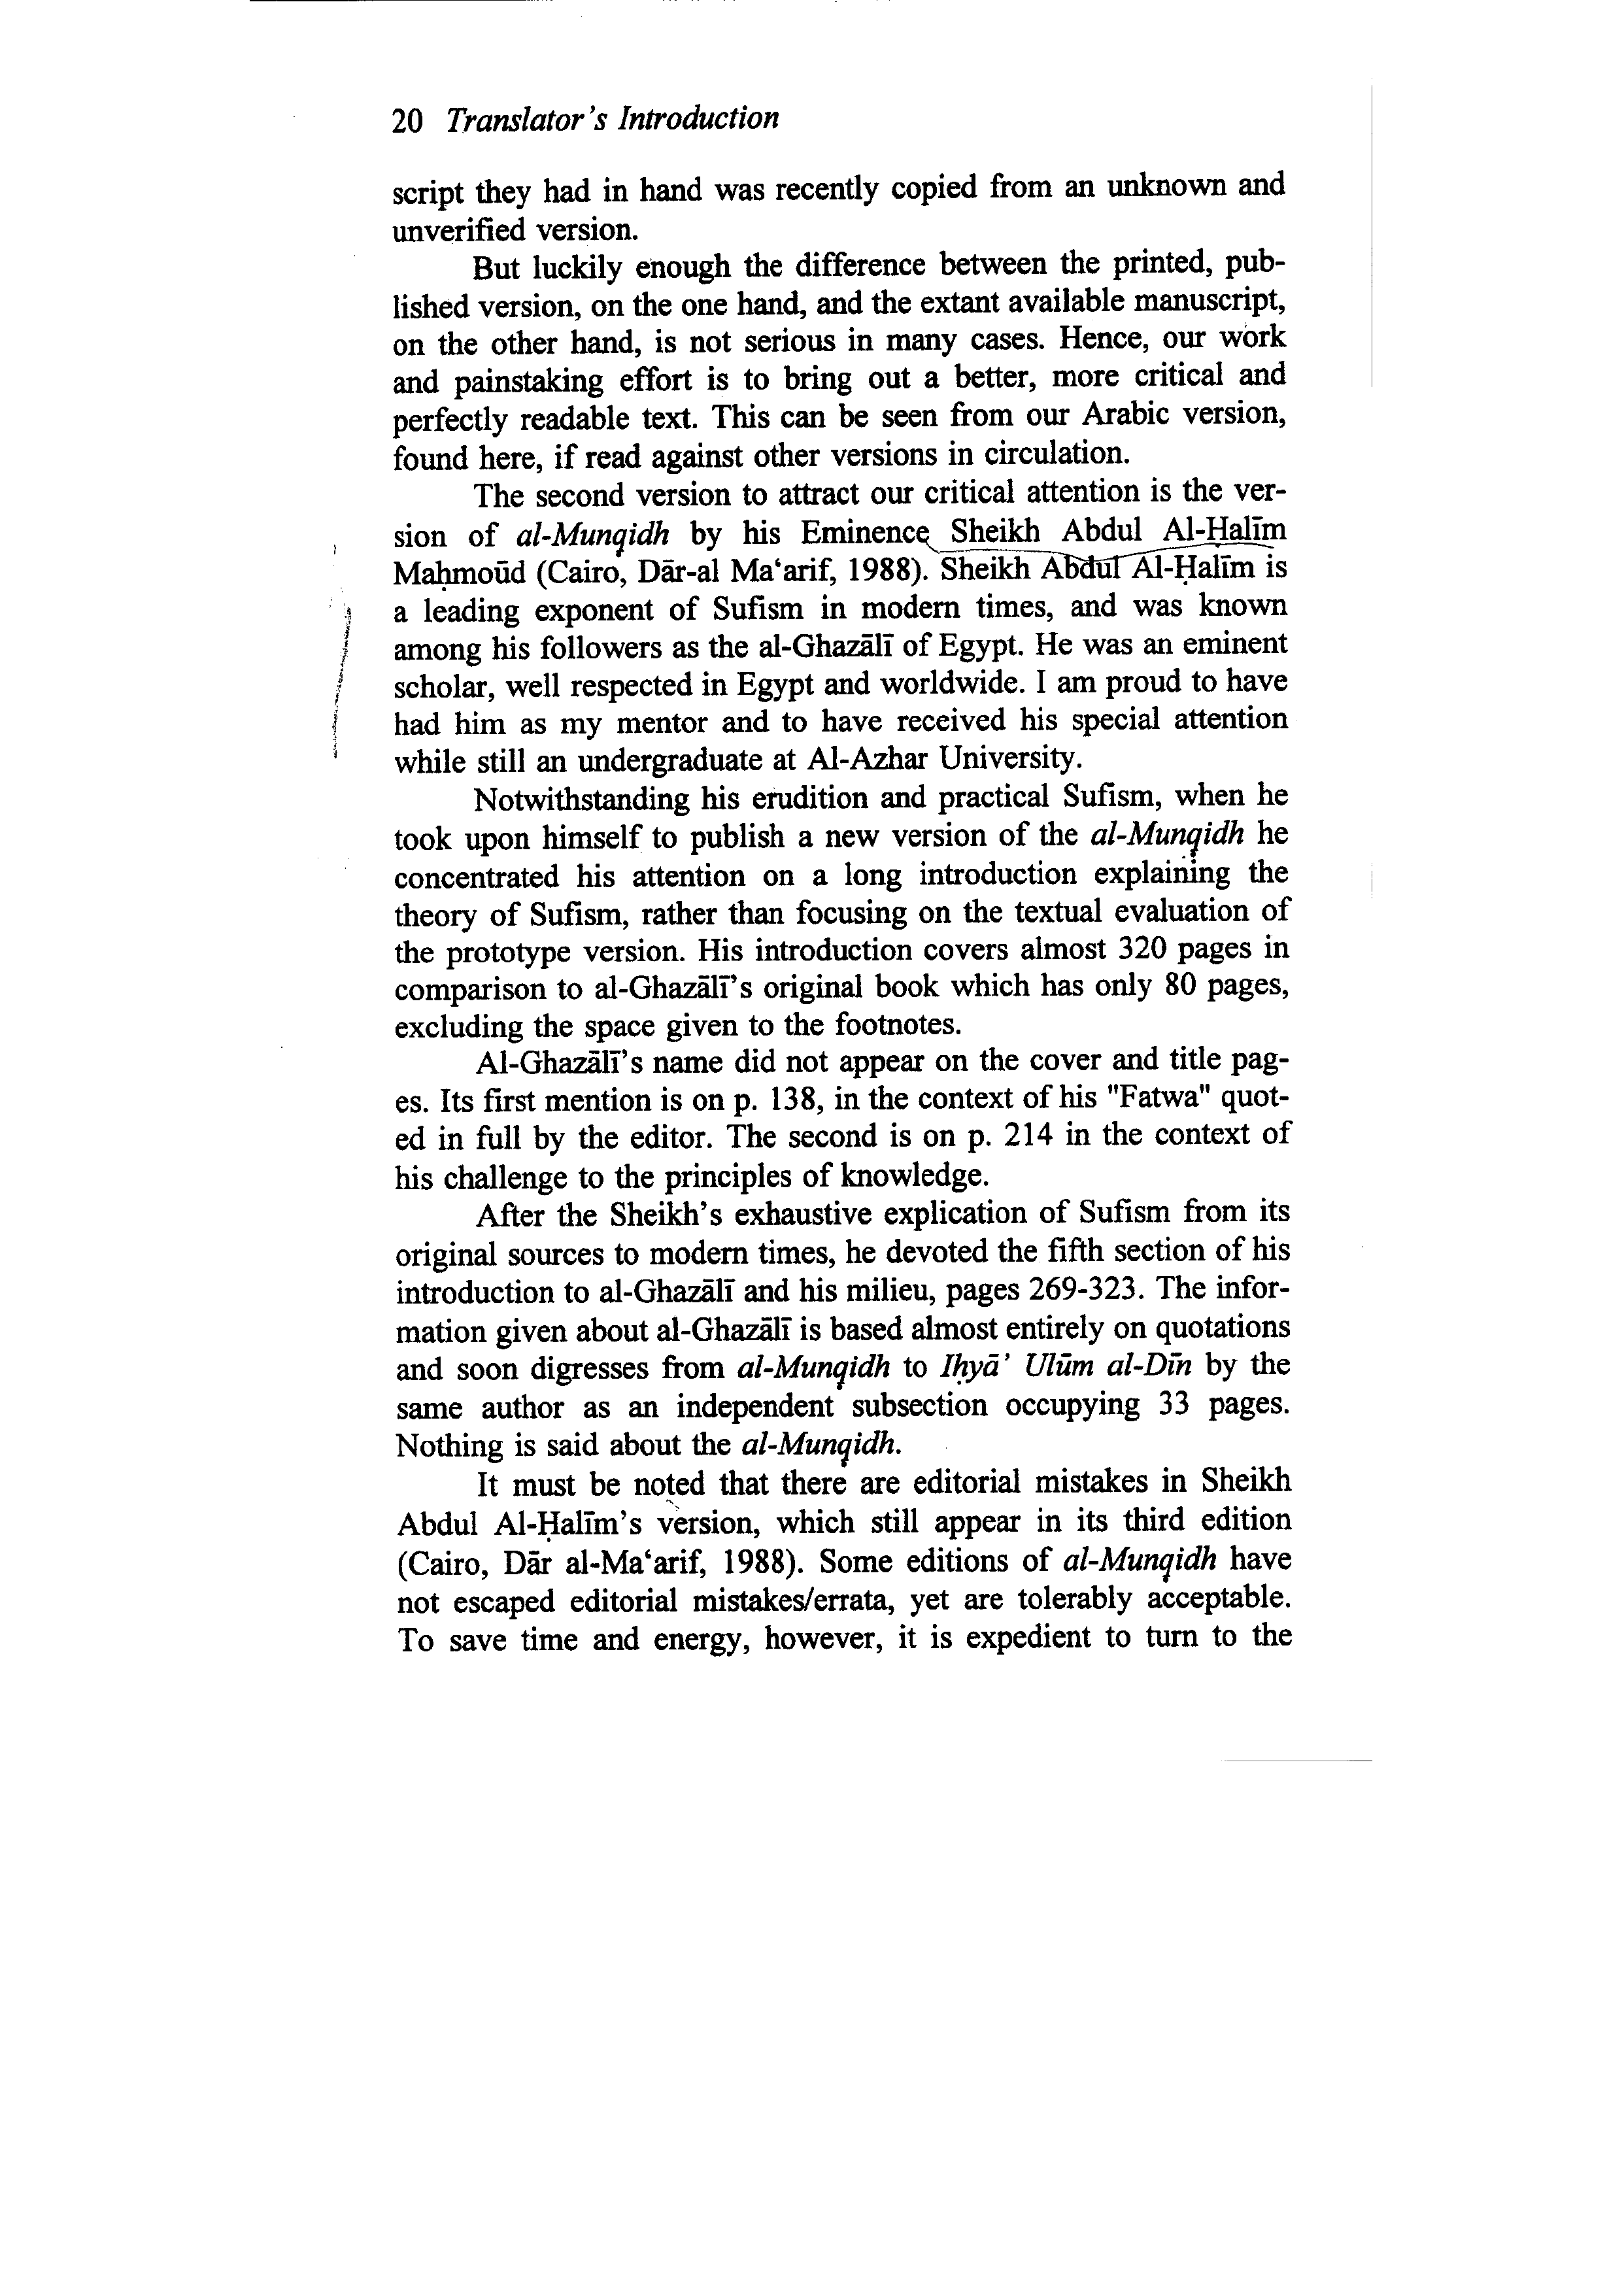 20 Translator's Introduction
script they had in hand was recently copied from an unknown and
unverified version.
But luckily enough the difference between the printed, pub-
lished version, on the one hand, and the extant available manuscript,
on the other hand, is not serious in many cases. Hence, our work
and painstaking effort is to bring out a better, more critical and
perfectly readable text. This can be seen from our Arabic version,
found here, if read against other versions in circulation.
The second version to attract our critical attention is the ver-
sion of al-Munqidh by his Eminence Sheikh Abdul Al-Ḥalīm
Maḥmoūd (Cairo, Dār-al Ma‘arif, 1988). Sheikh Abdul Al-Ḥalīm is
a leading exponent of Sufism in modern times, and was known
among his followers as the al-Ghazālī of Egypt. He was an eminent
scholar, well respected in Egypt and worldwide. I am proud to have
had him as my mentor and to have received his special attention
while still an undergraduate at Al-Azhar University.
Notwithstanding his erudition and practical Sufism, when he
took upon himself to publish a new version of the al-Munqidh he
concentrated his attention on a long introduction explaining the
theory of Sufism, rather than focusing on the textual evaluation of
the prototype version. His introduction covers almost 320 pages in
comparison to al-Ghazālī's original book which has only 80 pages,
excluding the space given to the footnotes.
Al-Ghazālī's name did not appear on the cover and title pag-
es. Its first mention is on p. 138, in the context of his "Fatwa" quot-
ed in full by the editor. The second is on p. 214 in the context of
his challenge to the principles of knowledge.
After the Sheikh's exhaustive explication of Sufism from its
original sources to modern times, he devoted the fifth section of his
introduction to al-Ghazālī and his milieu, pages 269-323. The infor-
mation given about al-Ghazālī is based almost entirely on quotations
and soon digresses from al-Munqidh to Iḥyā' Ulūm al-Dīn by the
same author as an independent subsection occupying 33 pages.
Nothing is said about the al-Munqidh.
It must be noted that there are editorial mistakes in Sheikh
Abdul Al-Ḥalīm's version, which still appear in its third edition
(Cairo, Dār al-Ma‘arif, 1988). Some editions of al-Munqidh have
not escaped editorial mistakes/errata, yet are tolerably acceptable.
To save time and energy, however, it is expedient to turn to the